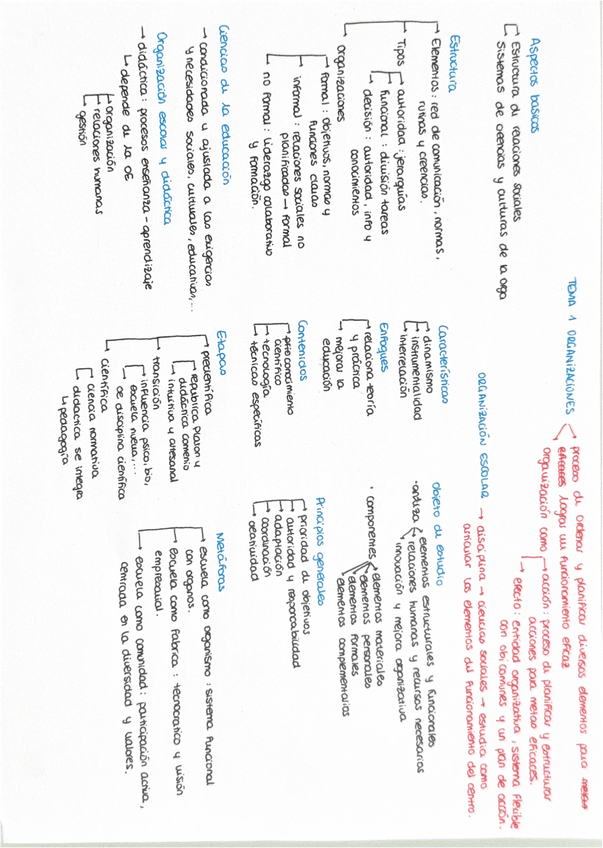 TEMA 1 ORGANIZACIONES
proceso de ordenar y planificar diversos elementos para
lograr un funcionamiento eficaz
organización como
acción: proceso de planificar y estructurar
acciones para metas eficaces.
efecto: entidad organizativa, sistema flexible
con obj comunes y un plan de acción.
ORGANIZACIÓN ESCOLAR → disciplina → ciencias sociales → estudia como
articular los elementos del funcionamiento del centro.
Aspectos básicos
Estructura de relaciones sociales
Sistemas de creencias y culturas de la orga
Estructura
Elementos: red de comunicación, normas,
rutinas y creencias.
Tipos
autoridad: jerarquías
funcional: división tareas
decisión: autoridad, info y
conocimientos
Organizaciones
formal: objetivos, normas y
funciones claras
informal: relaciones sociales no
planificadas → formal
no formal: liderazgo colaborativo
y formación.
Ciencias de la educación
→ condicionada y ajustada a las exigencias
y necesidades sociales, culturales, educativas,...
Organización escolar y didáctica
→ didáctica: procesos enseñanza-aprendizaje
↳ depende de la OE
organización
relaciones humanas
gestión
Características
dinamismo
instrumentalidad
interrelación
Enfoques
relaciona teoría
y práctica
mejorar la
educación
Contenidos
conocimiento
científico
tecnología
técnicas específicas
Etapas
precientífica
república Platon y
didáctica comenio
intuitiva y artesanal
transición
influencia psico, bio,
escuela nueva,...
OE disciplina científica
científica
ciencia normativa
didactica se integra
↳ pedagogía
Objeto de estudio
· analiza
elementos estructurales y funcionales
relaciones humanas y recursos necesarios
innovación y mejora organizativa
· componentes
elementos materiales
elementos personales
elementos formales
elementos complementarios
Principios generales
prioridad de objetivos
autoridad y responsabilidad
adaptación
coordinación
creatividad
Metáforas
escuela como organismo: sistema funcional
con organos.
escuela como fabrica: tecnocratico y visión
empresarial.
escuela como comunidad: participación activa,
centrada en la diversidad y valores.